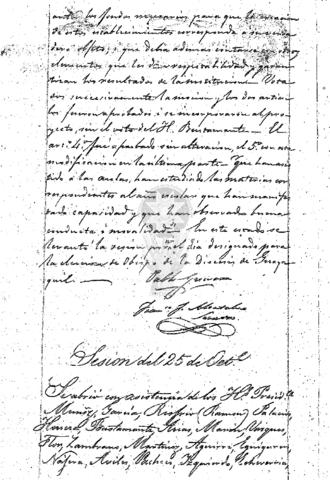 ante los fondos necesarios para que la creacion
de estos establecimientos corresponda a su verda
dero objeto, i que debia ademas contarse con otros
elementos que les den respetabilidad y garan
ticen los resultados de la institucion. Vota
dos sucesivamente la mocion y los dos artícu
los fueron aprobados i se incorporaron al pro
yecto, sin el voto del H. Bustamante. El
art. 4.º fué aprobado sin alteracion, el 5.º con esta
modificacion en la última parte "Que han asis
tido á las aulas, han estudiado las materias cor
respondientes al año escolar que han manifes
tado capacidad y que han observado buena
conducta i moralidad". En este estado se
levantó la sesion por ser el dia designado para
la eleccion de Obispo de la Diócesis de Guaya
quil.
Pablo Guevara
Sesion del 25 de Oct.e
Se abrió con asistencia de los H.s Presid.te
Muñoz, García, Riofrio (Ramon) Palacios,
Herrera, Bustamante, Arias, Marin, Vásquez,
Flor, Zambrano, Martinez, Aguirre, Eguiguren,
Nájera, Aviles, Pacheco, Izquierdo, Echeverria,